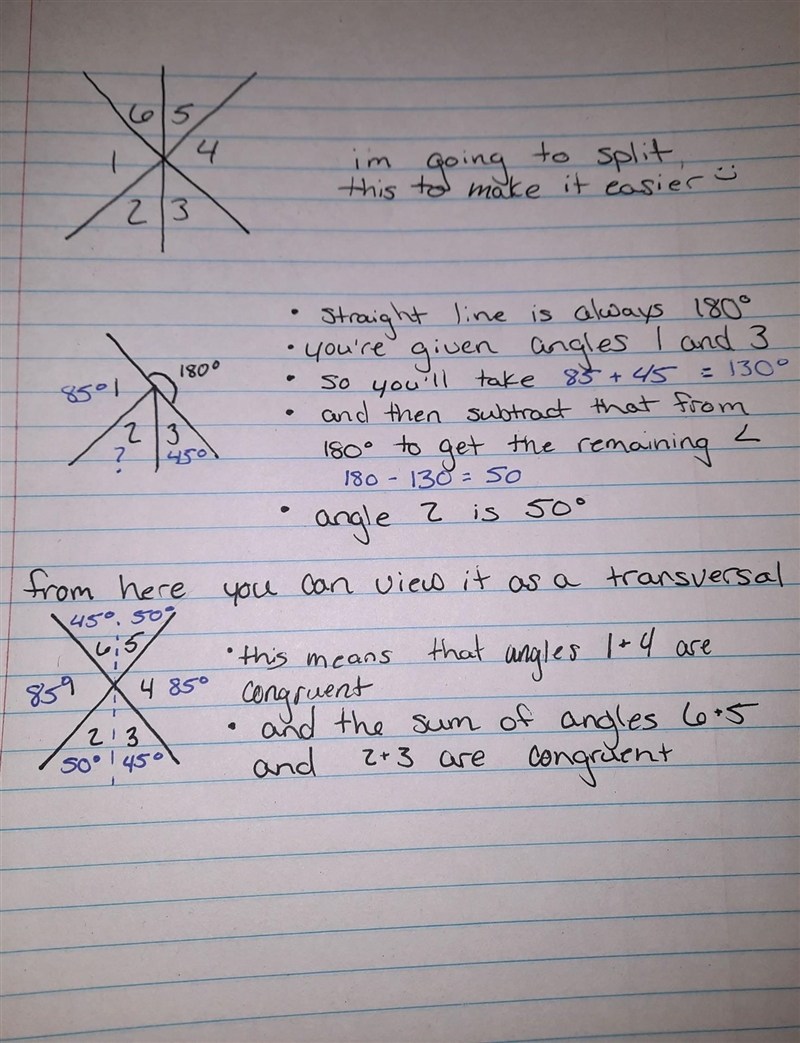 6 5
1 4
2 3
im going to split
this to make it easier :)
• straight line is always 180°
• you're given angles 1 and 3
• so you'll take 85 + 45 = 130°
• and then subtract that from
180° to get the remaining <
180 - 130 = 50
• angle 2 is 50°
180°
85° 1
2 3
? 45°
from here you can view it as a transversal
45° 50°
6 5
85° 4 85°
2 3
50° 45°
• this means that angles 1 + 4 are
congruent
• and the sum of angles 6 + 5
and 2 + 3 are congruent